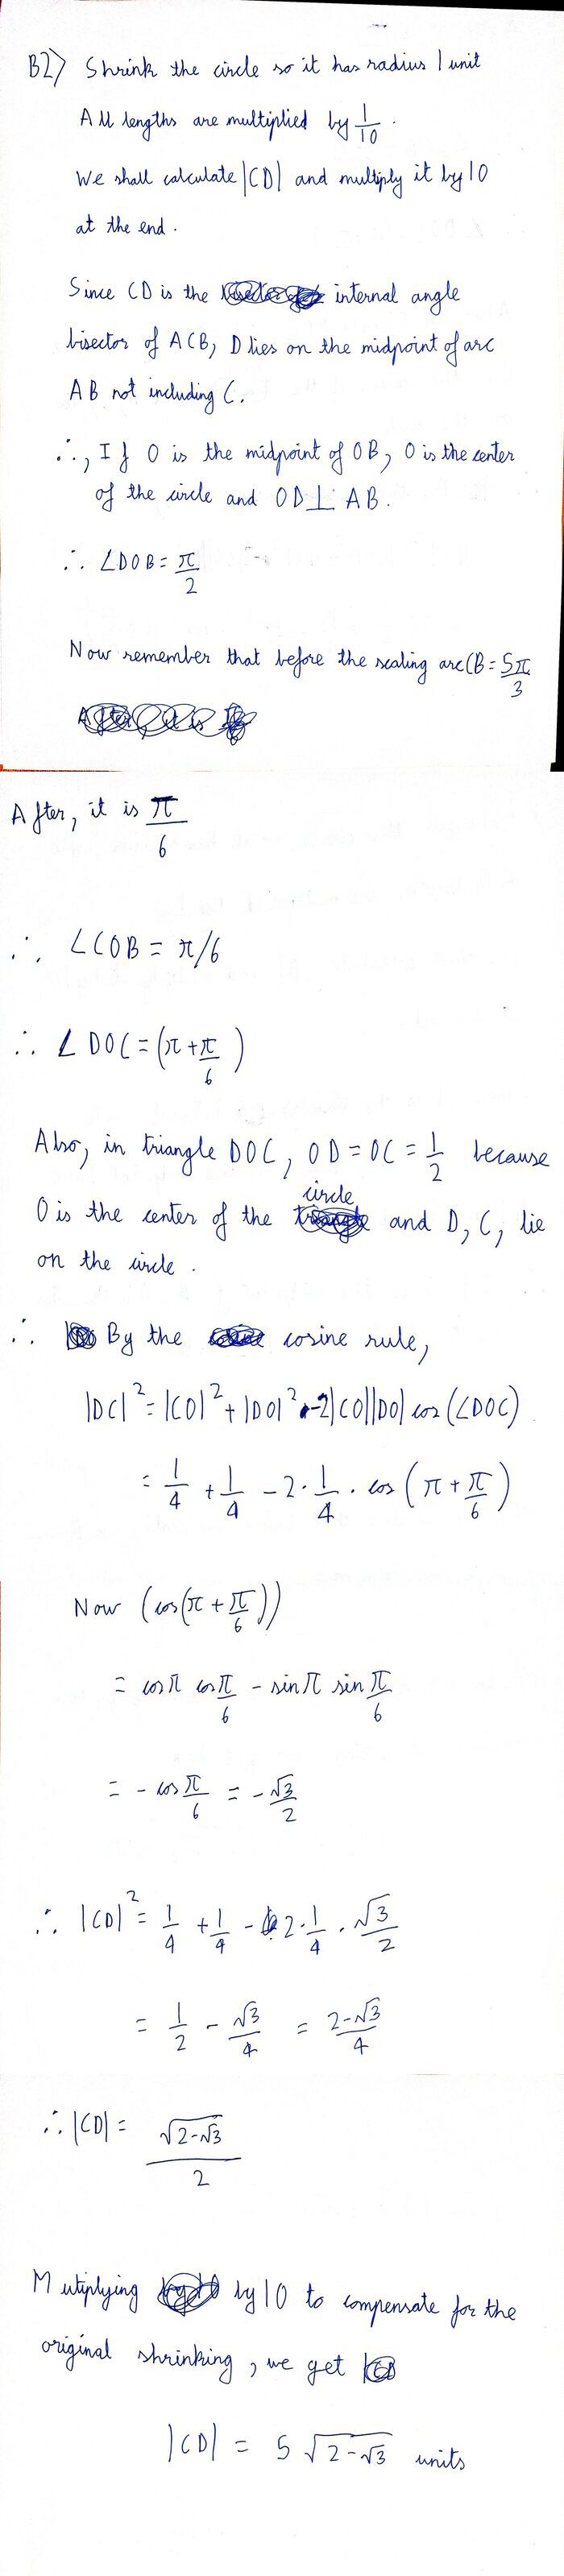 B2) Shrink the circle so it has radius 1 unit
All lengths are multiplied by 1/10.
We shall calculate |CD| and multiply it by 10
at the end.
Since CD is the internal angle
bisector of ACB, D lies on the midpoint of arc
AB not including C.
∴, If O is the midpoint of OB, O is the center
of the circle and OD ⊥ AB.
∴ ∠DOB = π/2
Now remember that before the scaling arc CB = 5π/3
After, it is π/6
∴ ∠COB = π/6
∴ ∠DOC = (π + π/6)
Also, in triangle DOC, OD = OC = 1/2 because
O is the center of the circle and D, C, lie
on the circle.
∴ By the cosine rule,
|DC|² = |CO|² + |DO|² - 2|CO||DO| cos(∠DOC)
= 1/4 + 1/4 - 2·1/4 · cos(π + π/6)
Now (cos(π + π/6))
= cosπ cosπ/6 - sinπ sinπ/6
= - cosπ/6 = -√3/2
∴ |CD|² = 1/4 + 1/4 - 2·1/4 · √3/2
= 1/2 - √3/4 = 2-√3/4
∴ |CD| = √(2-√3)/2
Mutiplying by 10 to compensate for the
original shrinking, we get
|CD| = 5√(2-√3) units